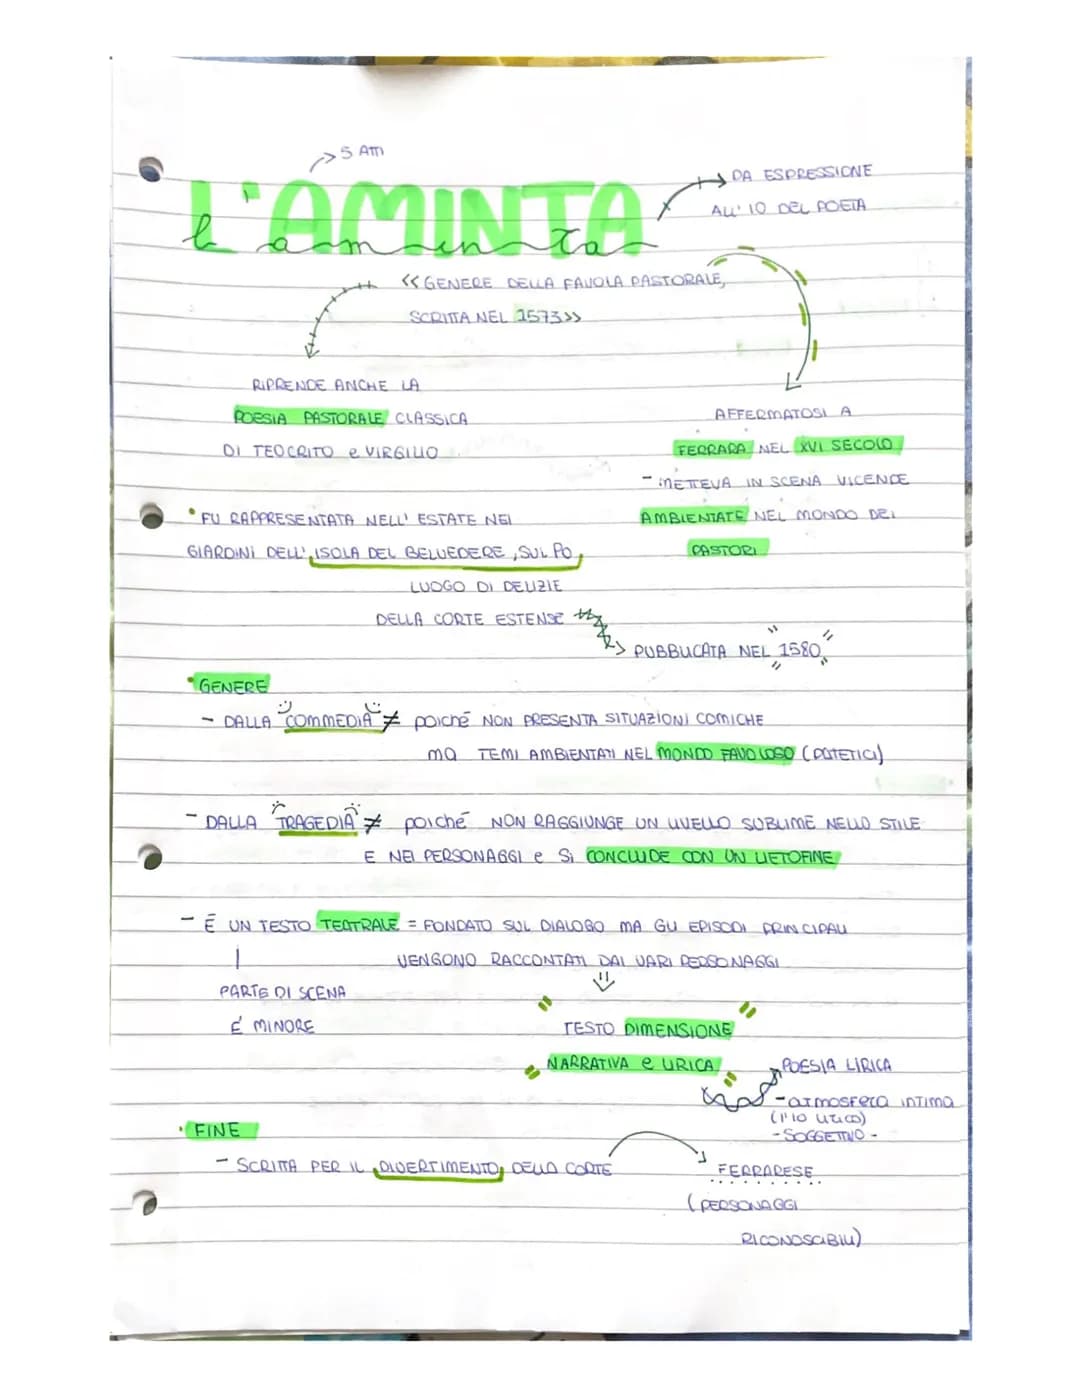 5 ATTI
L'AMINTA
l'aminta
DA ESPRESSIONE
ALL' IO DEL POETA
<<GENERE DELLA FAVOLA PASTORALE,
SCRITTA NEL 1573>>
RIPRENDE ANCHE LA
POESIA PASTORALE CLASSICA
DI TEOCRITO e VIRGILIO
AFFERMATOSI A
FERRARA NEL XVI SECOLO
- METTEVA IN SCENA VICENDE
AMBIENTATE NEL MONDO DEI
PASTORI
• FU RAPPRESENTATA NELL' ESTATE NEI
GIARDINI DELL' ISOLA DEL BELVEDERE, SUL PO
LUOGO DI DELIZIE
DELLA CORTE ESTENSE
PUBBLICATA NEL "1580"
• GENERE
- DALLA COMMEDIA ≠ poiché NON PRESENTA SITUAZIONI COMICHE
ma TEMI AMBIENTATI NEL MONDO FAVOLOSO (PATETICI)
- DALLA TRAGEDIA ≠ poiché NON RAGGIUNGE UN LIVELLO SUBLIME NELLO STILE
E NEI PERSONAGGI e Si CONCLUDE CON UN LIETOFINE
- È UN TESTO TEATRALE = FONDATO SUL DIALOGO MA GLI EPISODI PRINCIPALI
VENGONO RACCONTATI DAI VARI PERSONAGGI
PARTE DI SCENA
É MINORE
TESTO DIMENSIONE
NARRATIVA e LIRICA
POESIA LIRICA
- atmosfera intima
(l'io lirico)
- SOGGETTIVO -
• FINE
- SCRITTA PER IL DIVERTIMENTO DELLA CORTE
FERRARESE
(PERSONAGGI
RICONOSCIBILI)